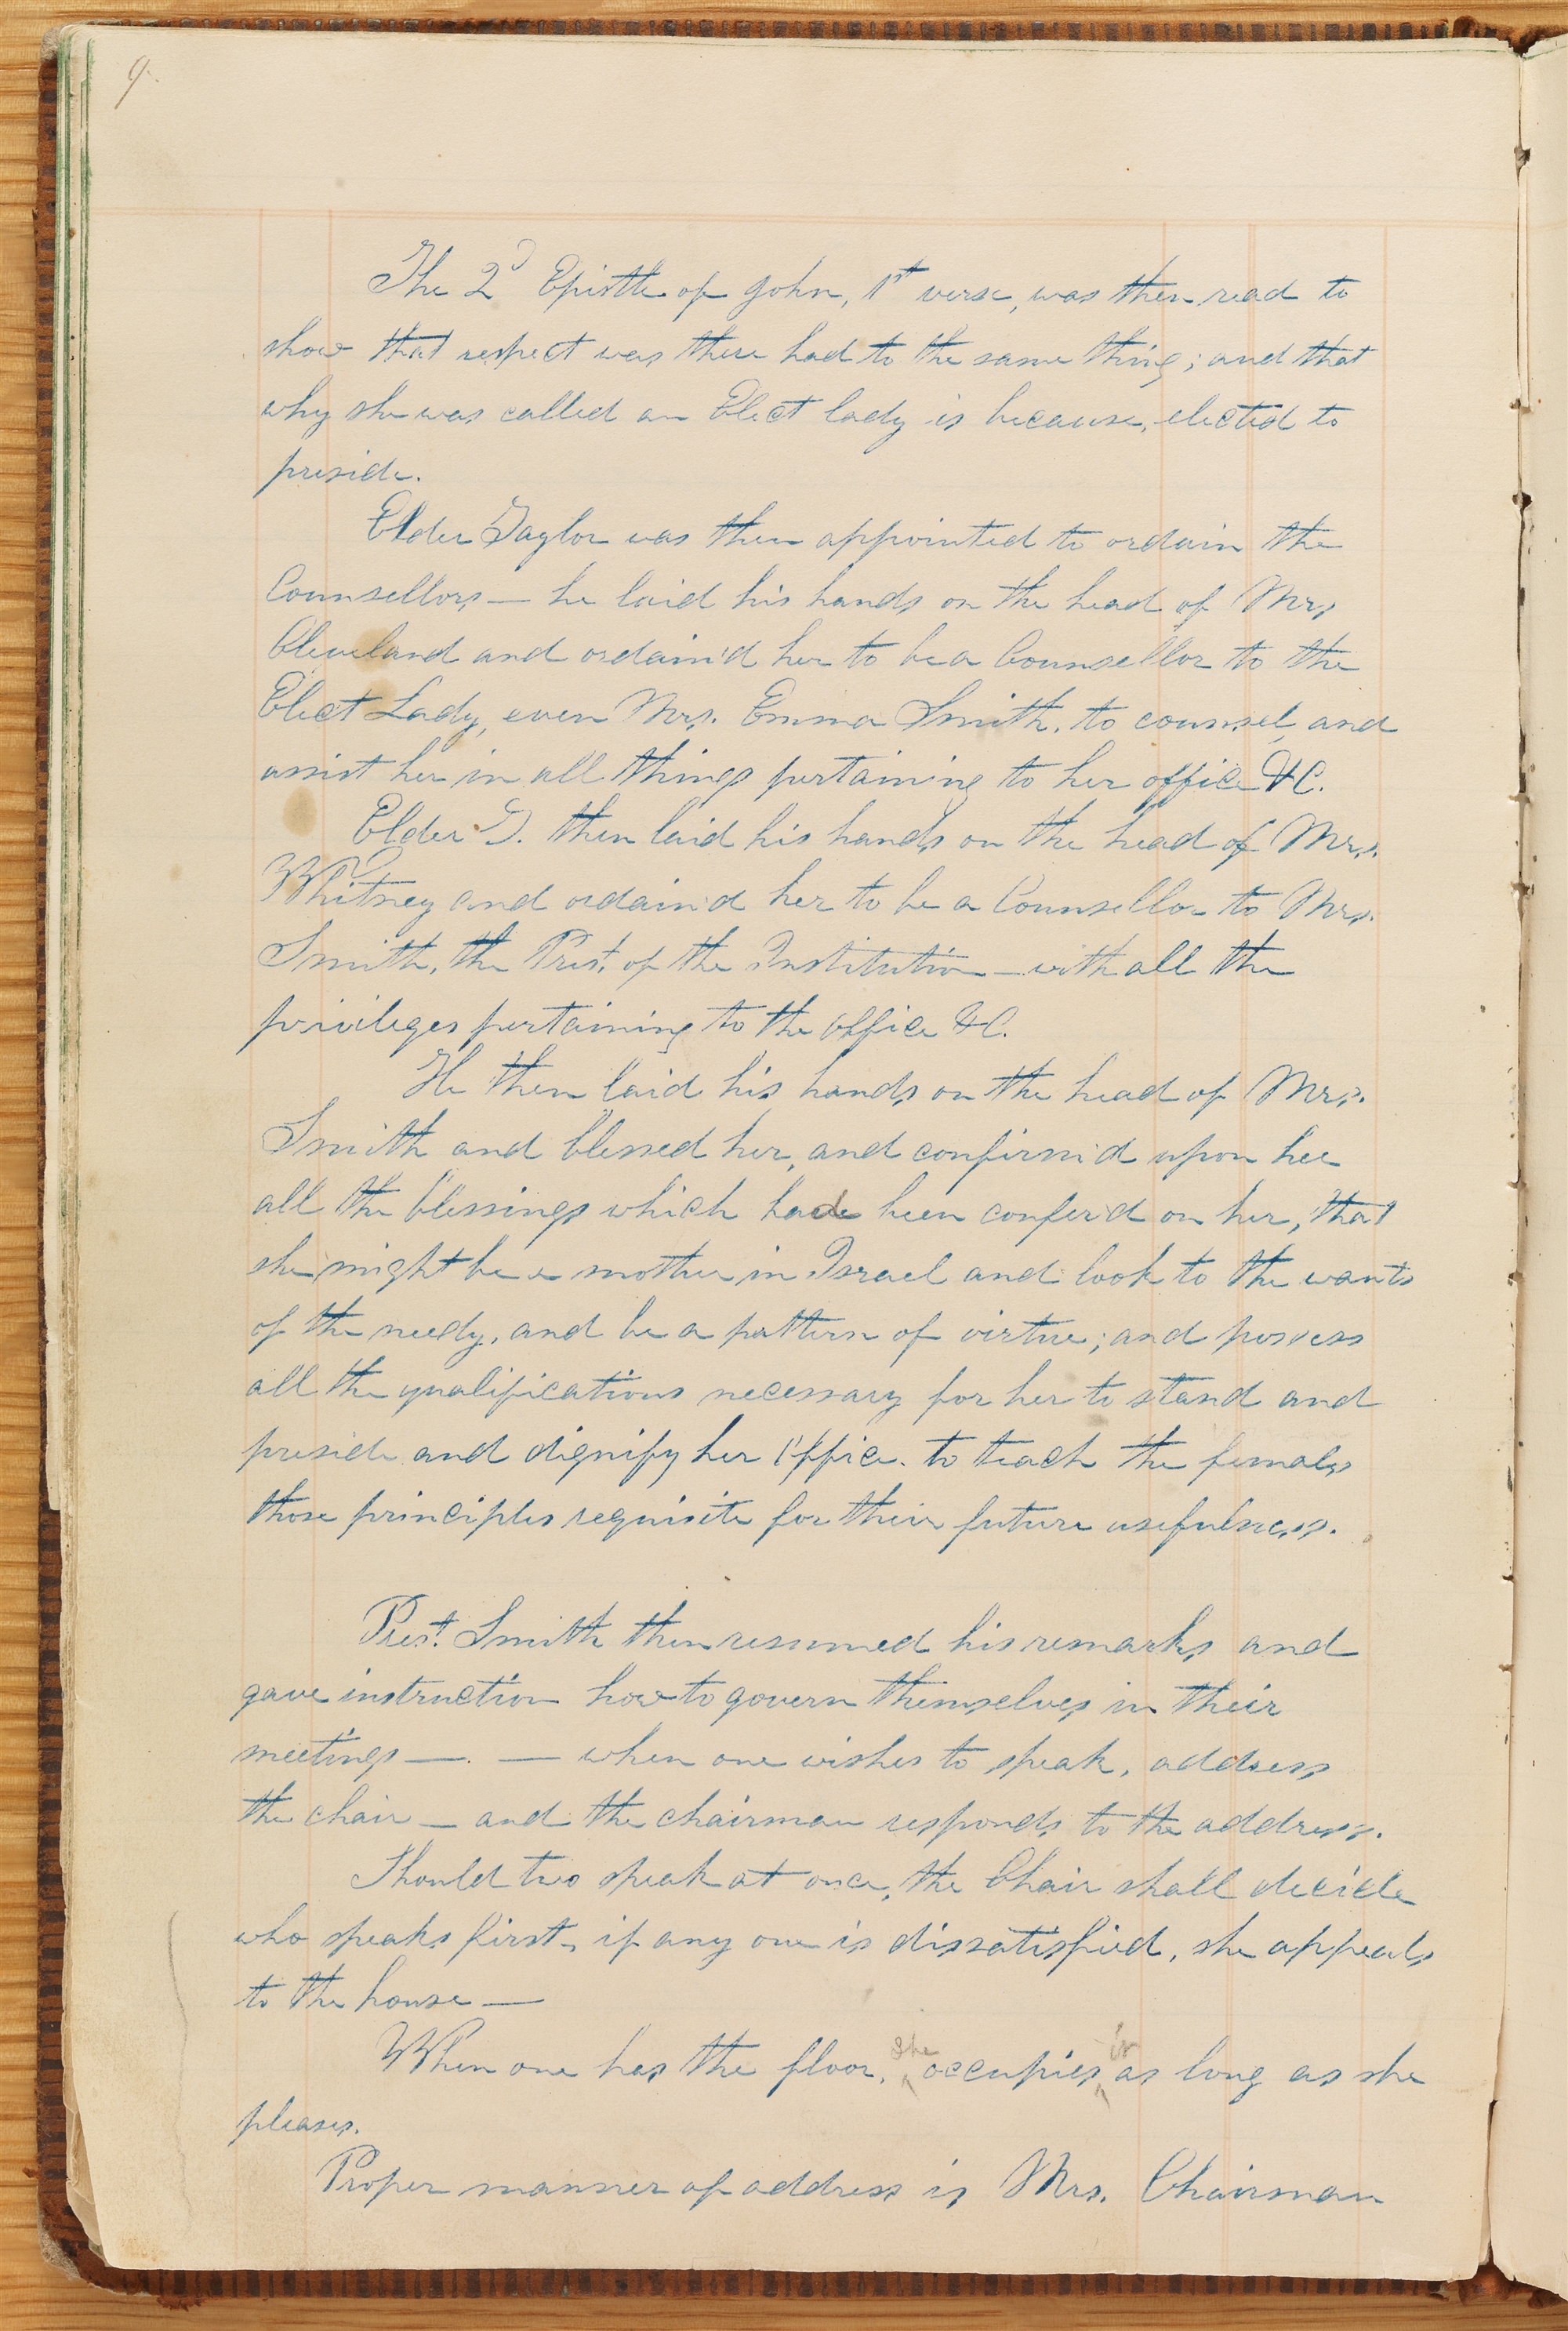 9.
The 2d Epistle of John, 1st verse, was then read to
show that respect was there had to the same thing; and that
why she was called an Elect lady is because, elected to
preside.
Elder Taylor was then appointed to ordain the
Counsellors — he laid his hands on the head of Mrs
Cleveland and ordain'd her to be a Counsellor to the
Elect Lady, even Mrs. Emma Smith, to counsel, and
assist her in all things pertaining to her office &C.
Elder T. then laid his hands on the head of Mrs.
Whitney and ordain'd her to be a Counsellor to Mrs.
Smith, the Prest. of the Institution — with all the
privileges pertaining to the office &C.
He then laid his hands on the head of Mrs.
Smith and blessed her, and confirm'd upon her
all the blessings which had been confer'd on her, that
she might be a mother in Israel and look to the wants
of the needy, and be a pattern of virtue; and possess
all the qualifications necessary for her to stand and
preside and dignify her Office. to teach the females
those principles requisite for their future usefulness.
Prest. Smith then resumed his remarks and
gave instruction how to govern themselves in their
meetings —. — when one wishes to speak, address
the chair — and the chairman responds to the address.
Should two speak at once, the Chair shall decide
who speaks first, if any one is dissatisfied, she appeals
to the house —
When one has the floor, she occupies it as long as she
pleases.
Proper manner of address is Mrs. Chairman